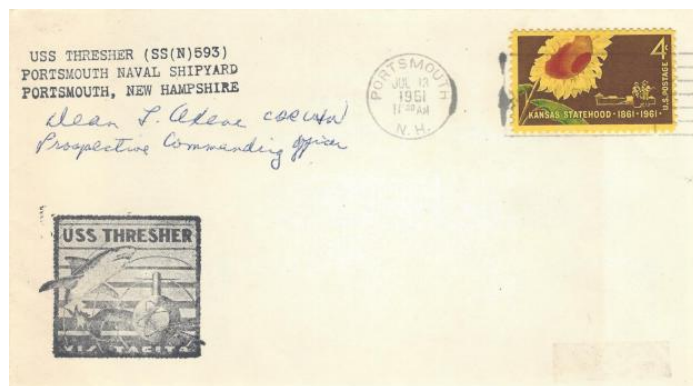 USS THRESHER (SS(N)593)
PORTSMOUTH NAVAL SHIPYARD
PORTSMOUTH, NEW HAMPSHIRE
Dean L. Axene CDR USN
Prospective Commanding Officer
PORTSMOUTH
JUL 13
1961
AM
N.H.
4c
U.S. POSTAGE
KANSAS STATEHOOD · 1861-1961 ·
USS THRESHER
VIS TACITA